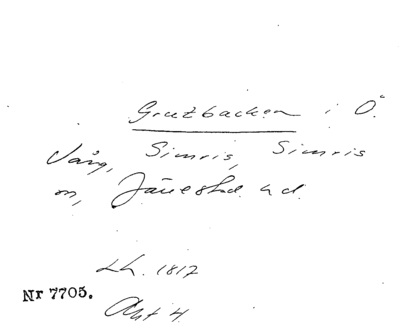 Grutbacken i Ö.
Vång, Simris, Simris
m, Järrestad h d.
Lh. 1812
Nr 7705.
Akt 4